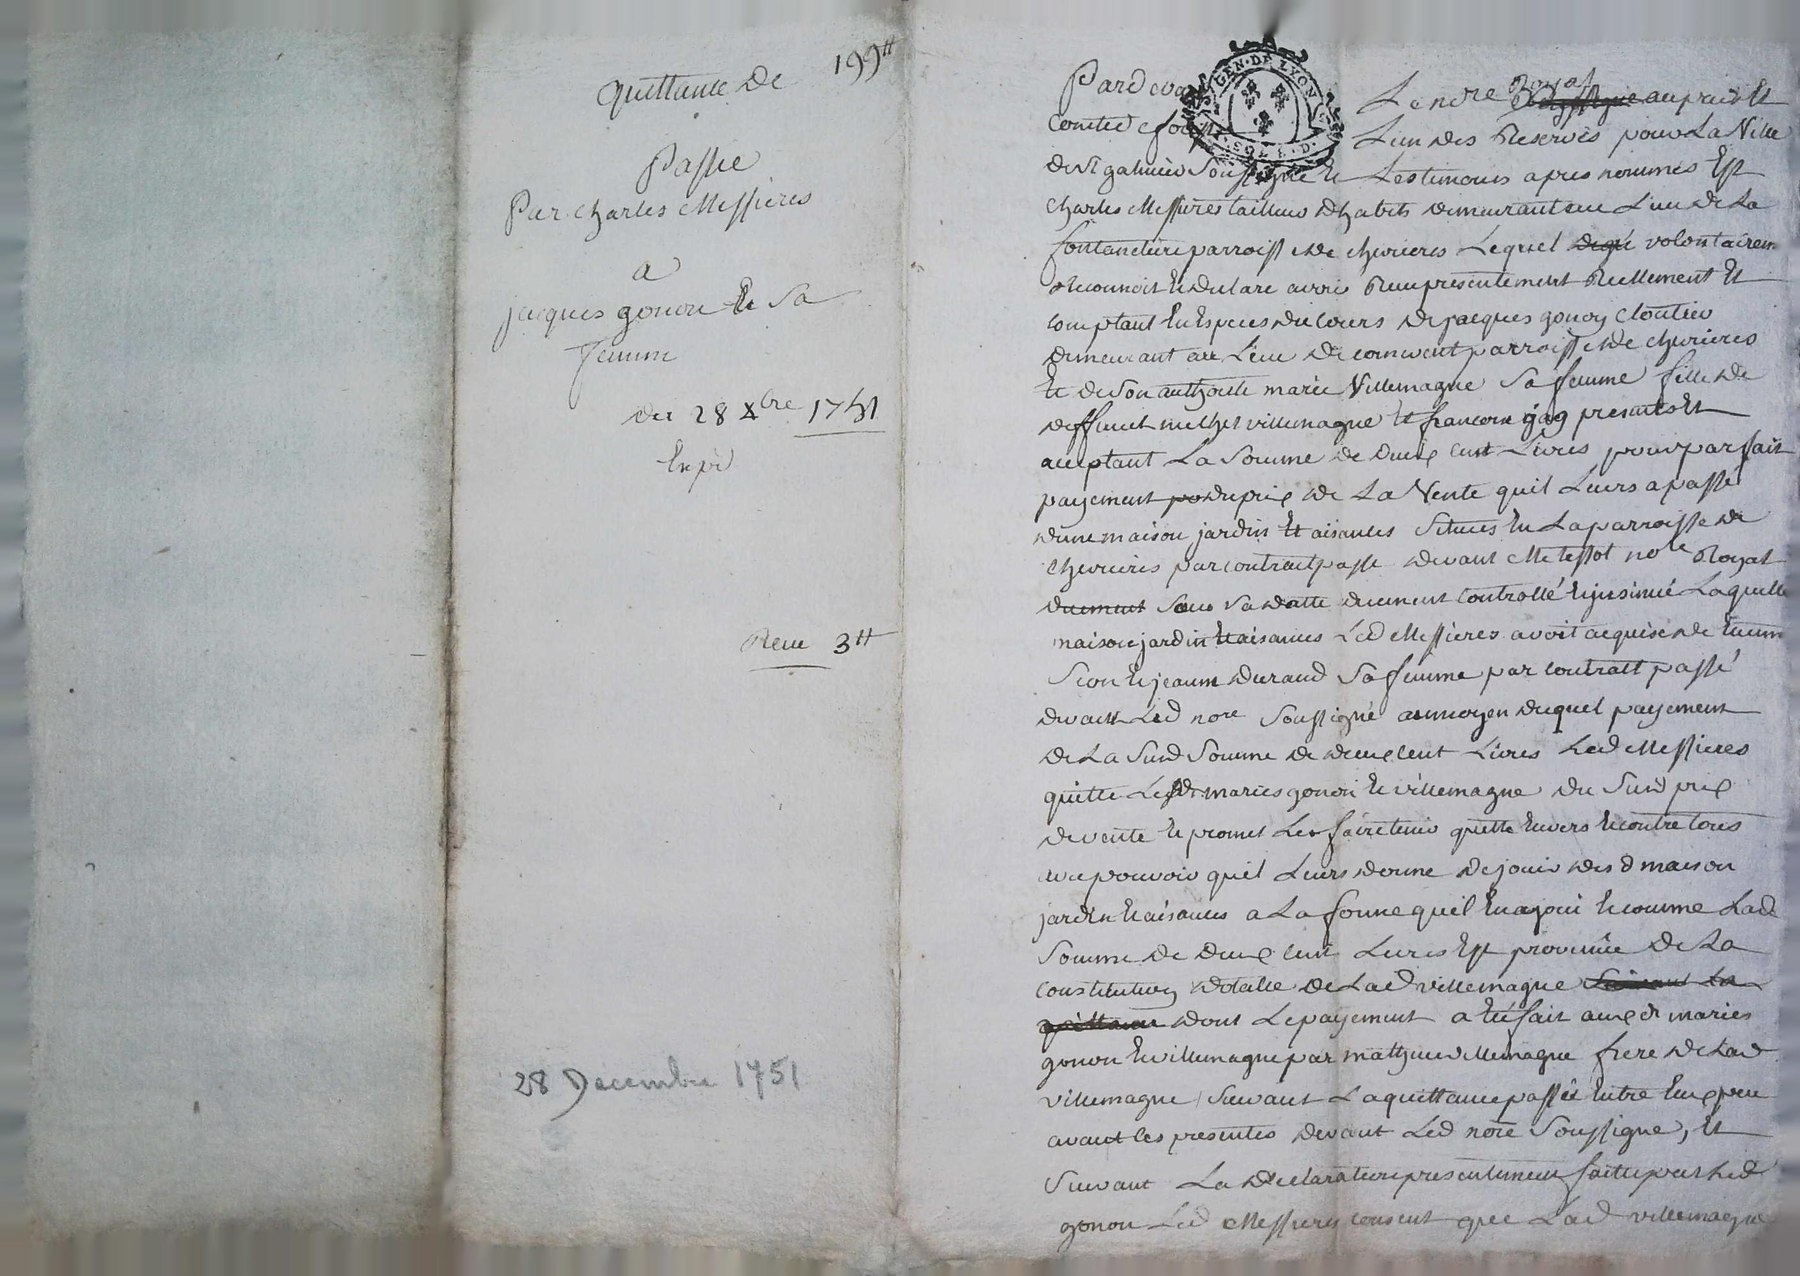 Quittance de 199tt
Passée
Par Charles Messieres
a
jacques gonon et Sa
femme
du 28 Xbre 1751
Exp d
Receu 3tt
28 Decembre 1751
GEN. DE LYON
SOL
Pardevant Le nre Royal au païs et
Comté de forest L'un des Reservés pour La Ville
de St galmier Soussigné et Les timoins apres nommés Est
Charles Messieres tailleur d'habits demeurant au Lieu de La
fontanciere parroisse de chevrieres Lequel de gré volontairem
Reconnoit et declare avoir Receu presentement Reellement et
comptant En Especes du Cours de jacques gonon Cloutier
demeurant au Lieu de parroisse de chevrieres
Et de Son authorité marie Villemagne Sa femme fille de
deffunct michel villemagne et francoise presents et
acceptant La Somme de deux cent Livres pour parfait
payement du prix de La Vente quil Leurs a passé
dune maison jardin Et aisances Situés En La parroisse de
Chevrieres par contrait passé devant Me tessot nore Royal
duement Sous Sa datte duement Controllé et insinué Laquelle
maison jardin Et aisances Led Messieres avoit acquise de
Sion et jeanne durand Sa femme par contrait passé
devant Led nore Soussigné au moyen duquel payement
de La Susd Somme de deux cent Livres Led Messieres
quitte Lesd mariés gonon et villemagne du Susd prix
de vente et promet Les faire tenir quitte Envers et contre tous
avec pouvoir quil Leurs donne de jouir desd maison
jardin et aisances a La forme quil En a joui et comme Lad
Somme de deux cent Livres Est provenue de La
Constitution dotalle de Lad villemagne Suivant La
quittance dont Le payement a Eté fait auxd mariés
gonon et villemagne par mathieu villemagne frere de Lad
villemagne Suivant La quittance passée Entre Eux peu
avant ces presentes devant Led nore Soussigné, et
Suivant La declaration presentement faitte par Led
gonon Led Messieres consent que Lad villemagne